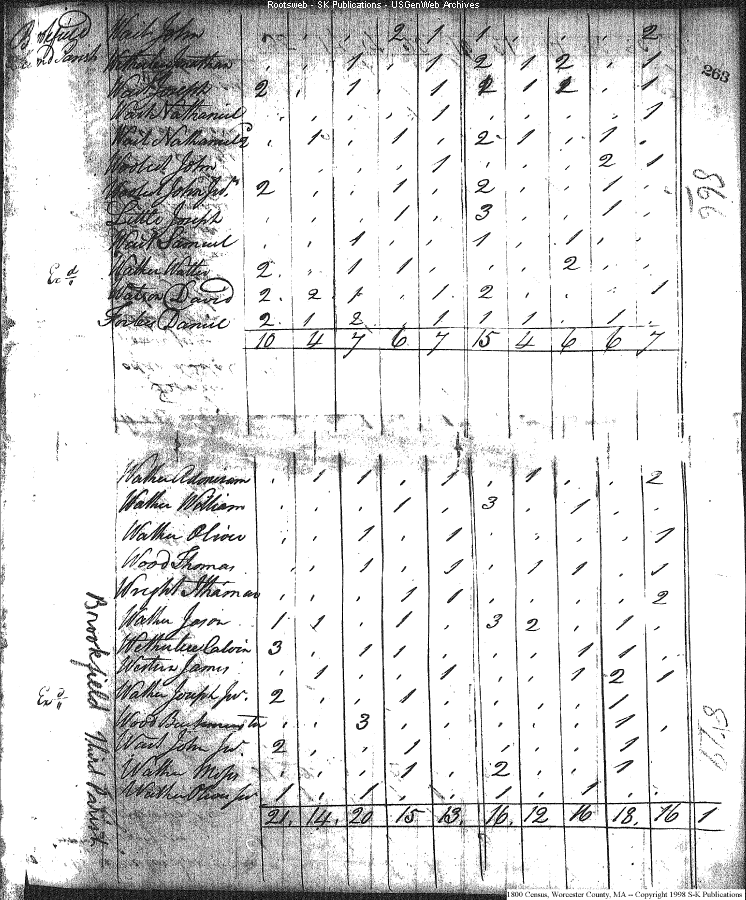 Rootsweb - SK Publications - USGenWeb Archives
Wait John . . . 2 1 1 . . . 2
. . 1 . 1 2 1 2 . 1
263
Wait Joseph 2 . 1 . 1 2 1 2 . 1
Wait Nathaniel . . . . 1 . . . . 1
Wait Nathaniel 2 . 1 . 1 . 2 1 . 1 .
John . . . . 1 . . . 2 1
John Jr. 2 . . 1 . 2 . . 1 .
868
Little Joseph . . . 1 . 3 . . 1 .
Wait Samuel . . 1 . . 1 . 1 . .
Ex d
Walker Walter 2 . . 1 1 . . . 2 . .
Watson David 2 2 1 . 1 2 . . . 1
Foster Daniel 2 1 2 . 1 1 1 . 1 .
10 4 7 6 7 15 4 6 6 7
Walker Adoniram . 1 1 . 1 . 1 . . 2
Walker William . . . 1 . 3 . 1 . .
Walker Oliver . . 1 . 1 . . . . 1
Wood Thomas . . 1 . 1 . 1 1 . 1
Wright Ithamar . . . 1 1 . . . . 2
Walker Jason 1 1 . 1 . 3 2 . 1 .
Wetherbee Calvin 3 . 1 1 . . . 1 1 .
Western James . 1 . . 1 . . 1 2 1
Ex d
Walker Joseph Jr. 2 . . 1 . . . . 1 .
Wood . . 3 . . . . . 1 .
Wait John Jr. 2 . . 1 . . . . 1 .
Walker Moses . . . 1 . 2 . . 1 .
Walker Oliver Jr 1 . 1 . . 1 . 1 . .
21. 14. 20 15 13. 16. 12 16 18. 16 1
Brookfield Third Parish
1800 Census, Worcester County, MA -- Copyright 1998 S-K Publications